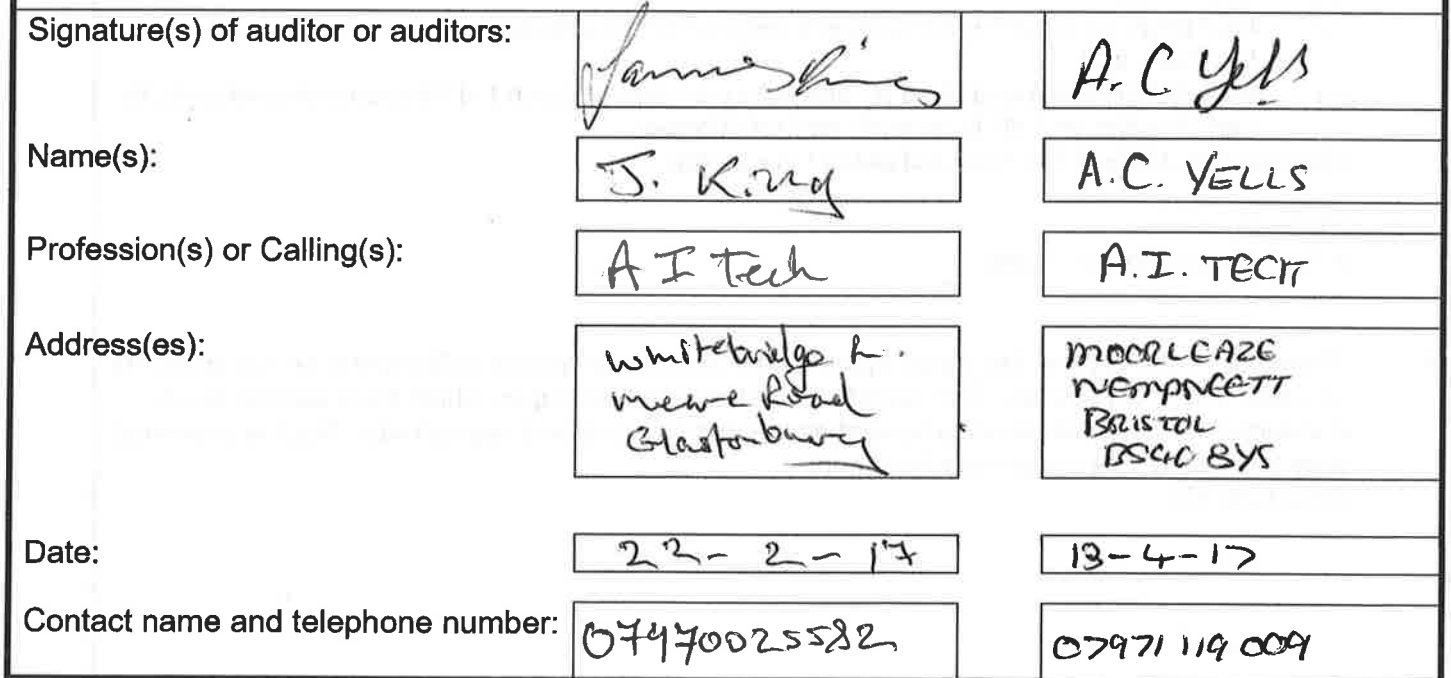 Signature(s) of auditor or auditors:
A. C Yells
Name(s):
J. King
A.C. YELLS
Profession(s) or Calling(s):
A I Tech
A.I. TECH
Address(es):
Whitebridge
meare Road
Glastonbury
MOORLEAZE
NEMPNETT
BRISTOL
BS40 8YS
Date:
22-2-17
13-4-17
Contact name and telephone number:
07970025582
07971 119 009